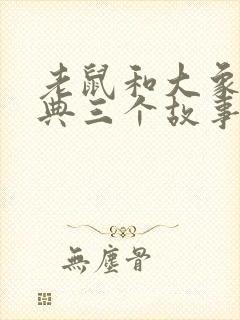 老鼠和大象
典三个故事
無塵骨